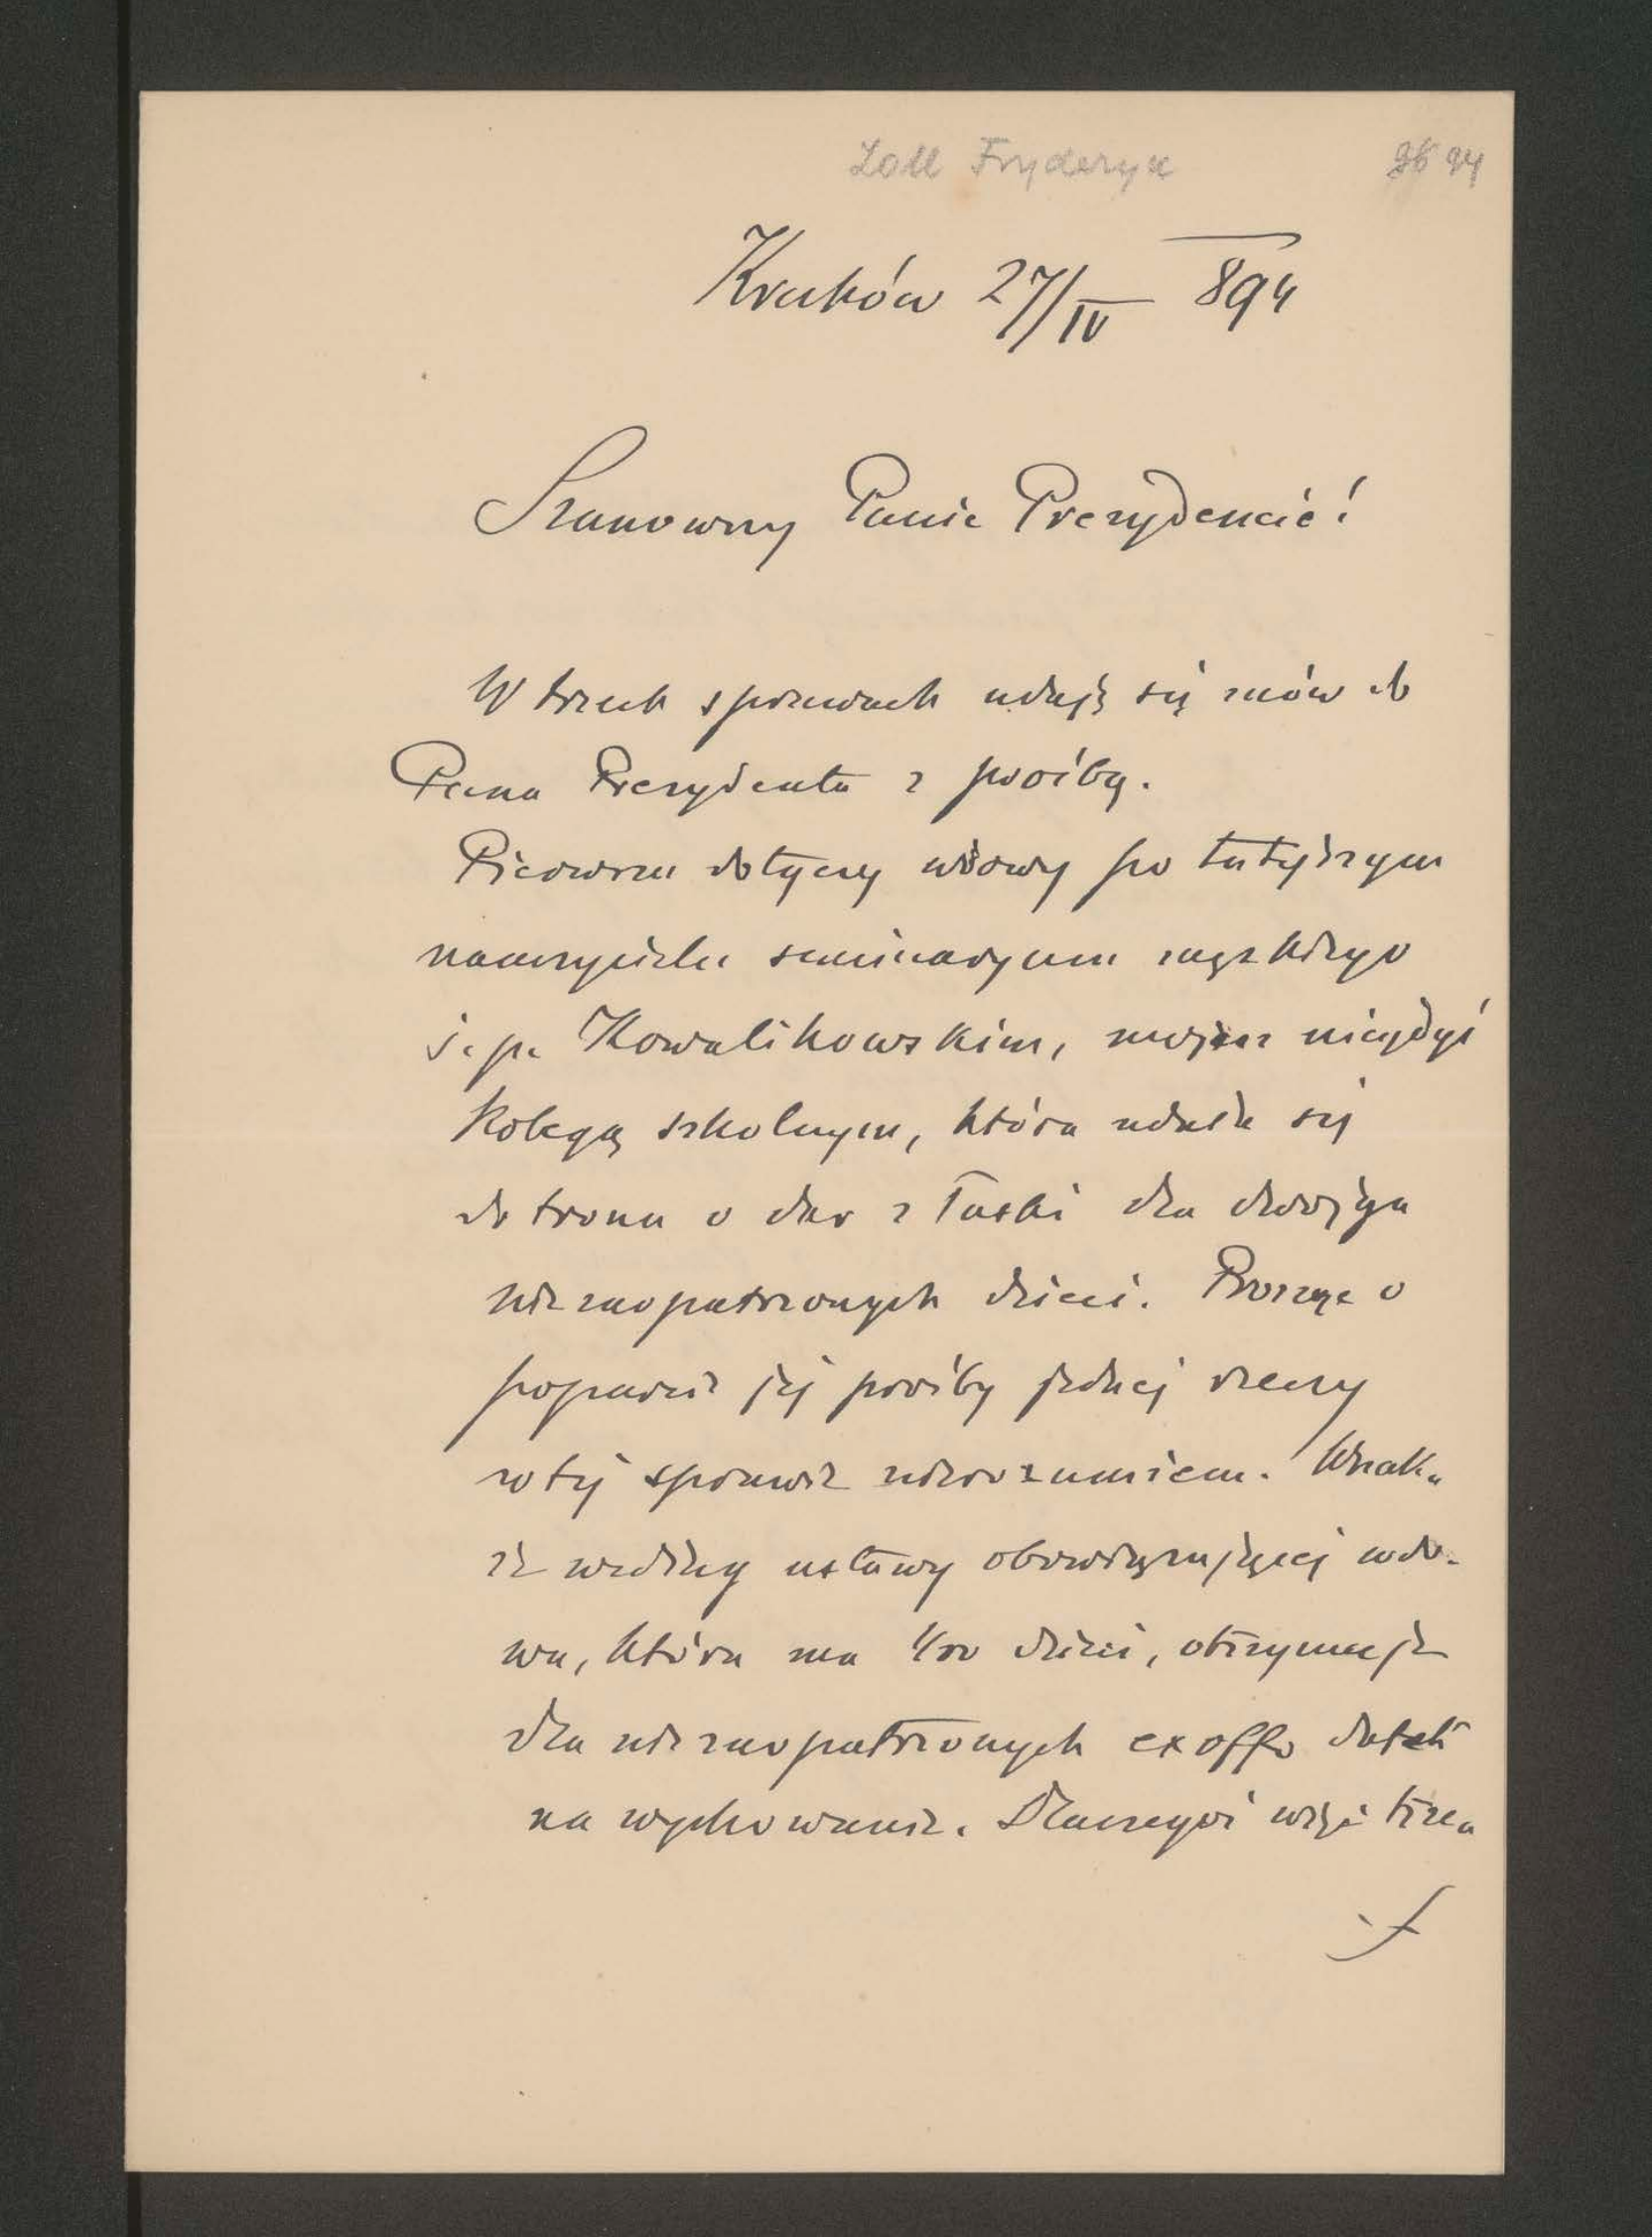 Zoll Fryderyk
94
Kraków 27/IV 894
Szanowny Panie Prezydencie!
W trzech sprawach udaję się znów do
Pana Prezydenta z prośbą.
Pierwsza dotyczy wdowy po tutejszym
nauczycielu seminaryum męzkiego
ś. p. Kowalikowskim, moim niegdyś
kolegą szkolnym, która udała się
do tronu o dar z łaski dla dwojga
niezaopatrzonych dzieci. Prosząc o
poparcie jej prośby jednej rzeczy
w tej sprawie nierozumiem. Wszak
że według ustawy obowiązującej wdo-
wa, która ma dzieci, otrzymuje
dla niezaopatrzonych ex offo datek
na wychowanie. Dlaczegoż więc trze